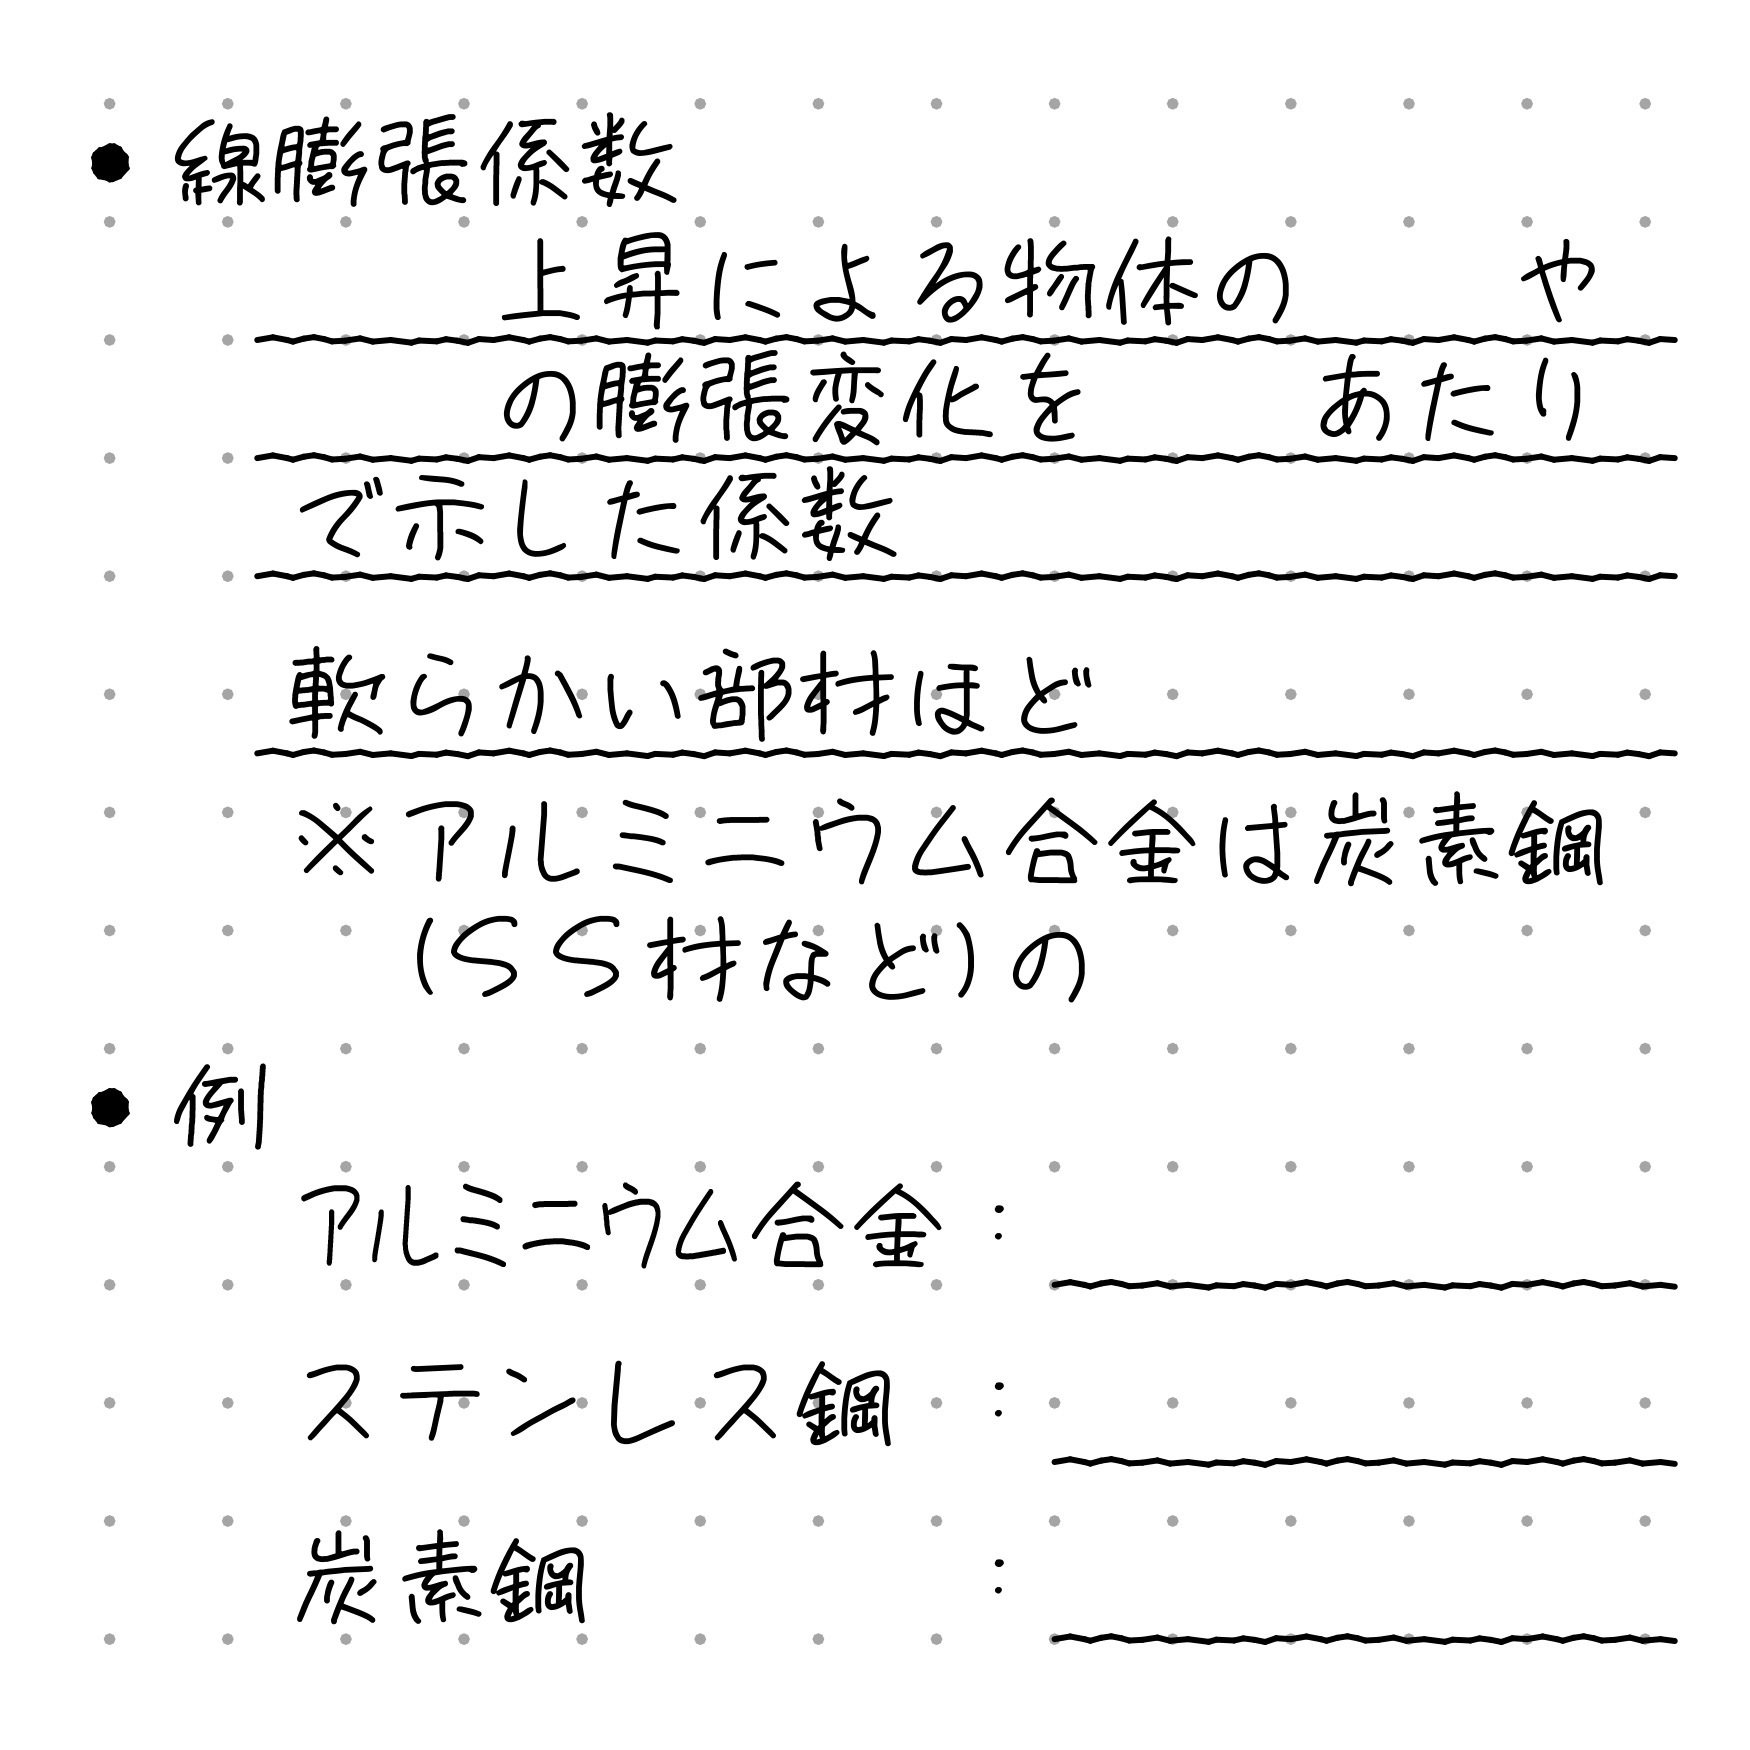 ● 線膨張係数
上昇による物体の　　や
の膨張変化を　　あたり
で示した係数
軟らかい部材ほど
※アルミニウム合金は炭素鋼
(SS材など)の
● 例
アルミニウム合金 :
ステンレス鋼 :
炭素鋼 :